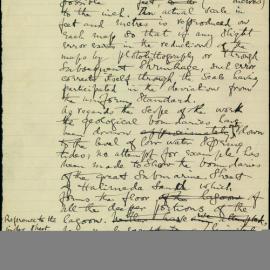 possible
to the inch. The actual scale in
feet and metres is reproduced on
each map so that any slight
error early in the reduction of the
maps by photolithography or through
subsequent shrinkage such error
corrects itself through the scale having
participated in the deviations from
the uniform standard.
As regards the scope of the work
the geological boundaries have
been drawn approximately down
to the level of low water spring
tides; no attempt for example has
been made to show the boundaries
of the great submarine sheet
of Halimeda sand which
forms the floor of the lagoon of
all the deeper portions of the
lagoon.
Reference to the